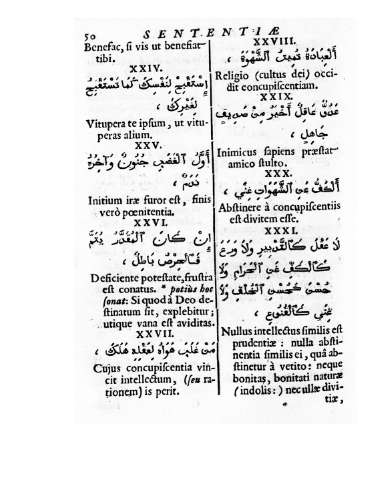 50 SENTENTIÆ
Benefac, si vis ut benefiat
tibi.
XXIV.
إستقبح لنفسك كما تستقبح
لغيرك ،
Vitupera te ipsum, ut vitu-
peras alium.
XXV.
أول الغضب جنون وآخره
ندم ،
Initium iræ furor est, finis
verò pœnitentia.
XXVI.
إن كان المقدر يتم
فالحرص باطل ،
Deficiente potestate, frustra
est conatus. * potius hoc
sonat: Si quod à Deo de-
stinatum sit, explebitur;
utique vana est aviditas.
XXVII.
من غلب هواه لعقله هلك ،
Cujus concupiscentia vin-
cit intellectum, (seu ra-
tionem) is perit.
XXVIII.
ألعبادة تميت الشهوة ،
Religio (cultus dei) occi-
dit concupiscentiam.
XXIX.
عدو عاقل أخير من صديق
جاهل ،
Inimicus sapiens præstat
amico stulto.
XXX.
ألكف عن الشهوات غني ،
Abstinere à concupiscentiis
est divitem esse.
XXXI.
لا عقل كالتدبير ولا ورع
كالكف عن الحرام ولا
حسن كحسن الخلق ولا
غني كالقنوع ،
Nullus intellectus similis est
prudentiæ: nulla absti-
nentia similis ei, quâ ab-
stinetur à vetito: neque
bonitas, bonitati naturæ
(indolis:) nec ullæ divi-
tiæ,